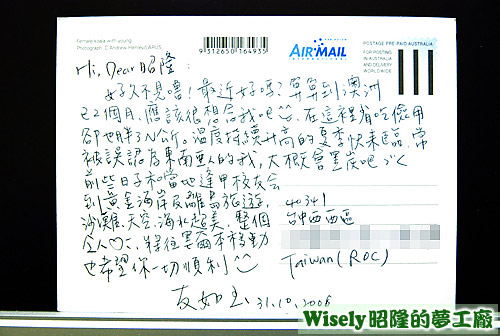 Female koala with young
Photograph: C Andrew Henley/LARUS
9 312650 164935
AIR MAIL
POSTAGE PRE-PAID AUSTRALIA
FOR POSTING
IN AUSTRALIA
AND DELIVERY
WORLDWIDE
Hi, Dear 昭隆:
好久不見嚕!最近好嗎?算算到澳洲
已2個月,應該很想念我吧 在這裡省吃儉用
卻也胖3N公斤。溫度持續升高的夏季快來臨,常
被誤認為東南亞人的我,大概會黑炭吧
前些日子和當地逢甲校友會
到黃金海岸及離島旅遊,
沙灘、天空、海水超美,整個
人♡ 將往墨爾本移動
也希望你一切順利
友如 31.10.2006
40341
台中西西區
Taiwan (ROC)
Wisely昭隆的夢工廠